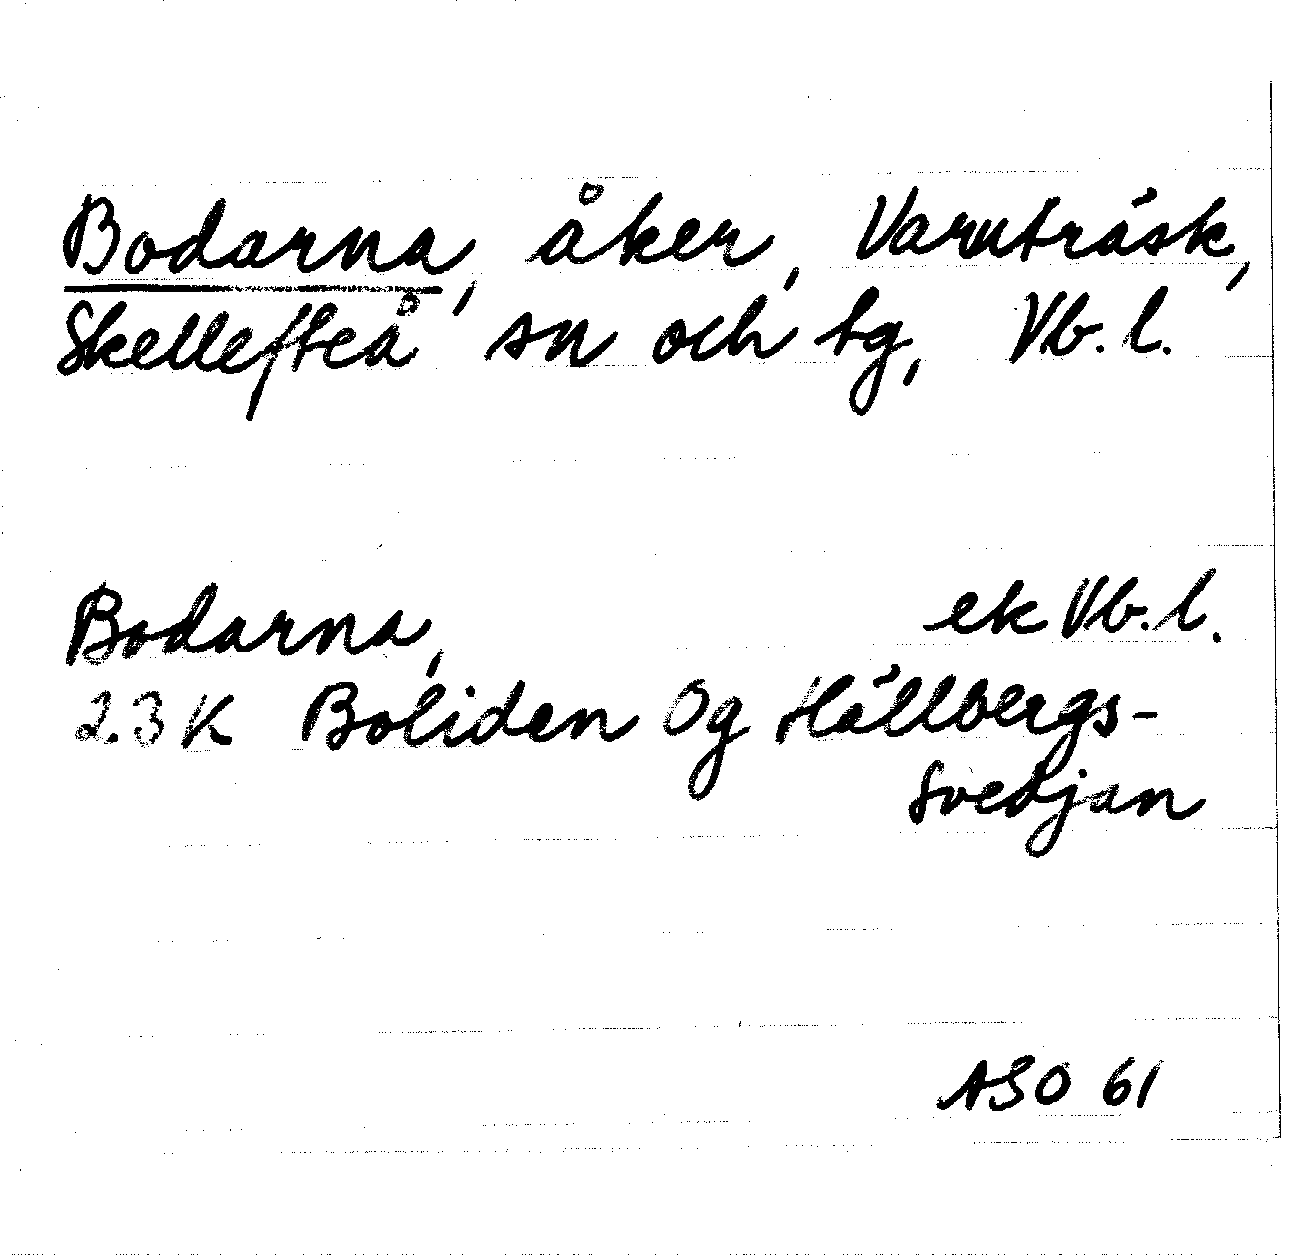 Bodarna, åker, Varuträsk,
Skellefteå sn och tg, Vb. l.
Bodarna, ek Vb. l.
23 K Boliden Og Hällbergs-
svedjan
ASO 61